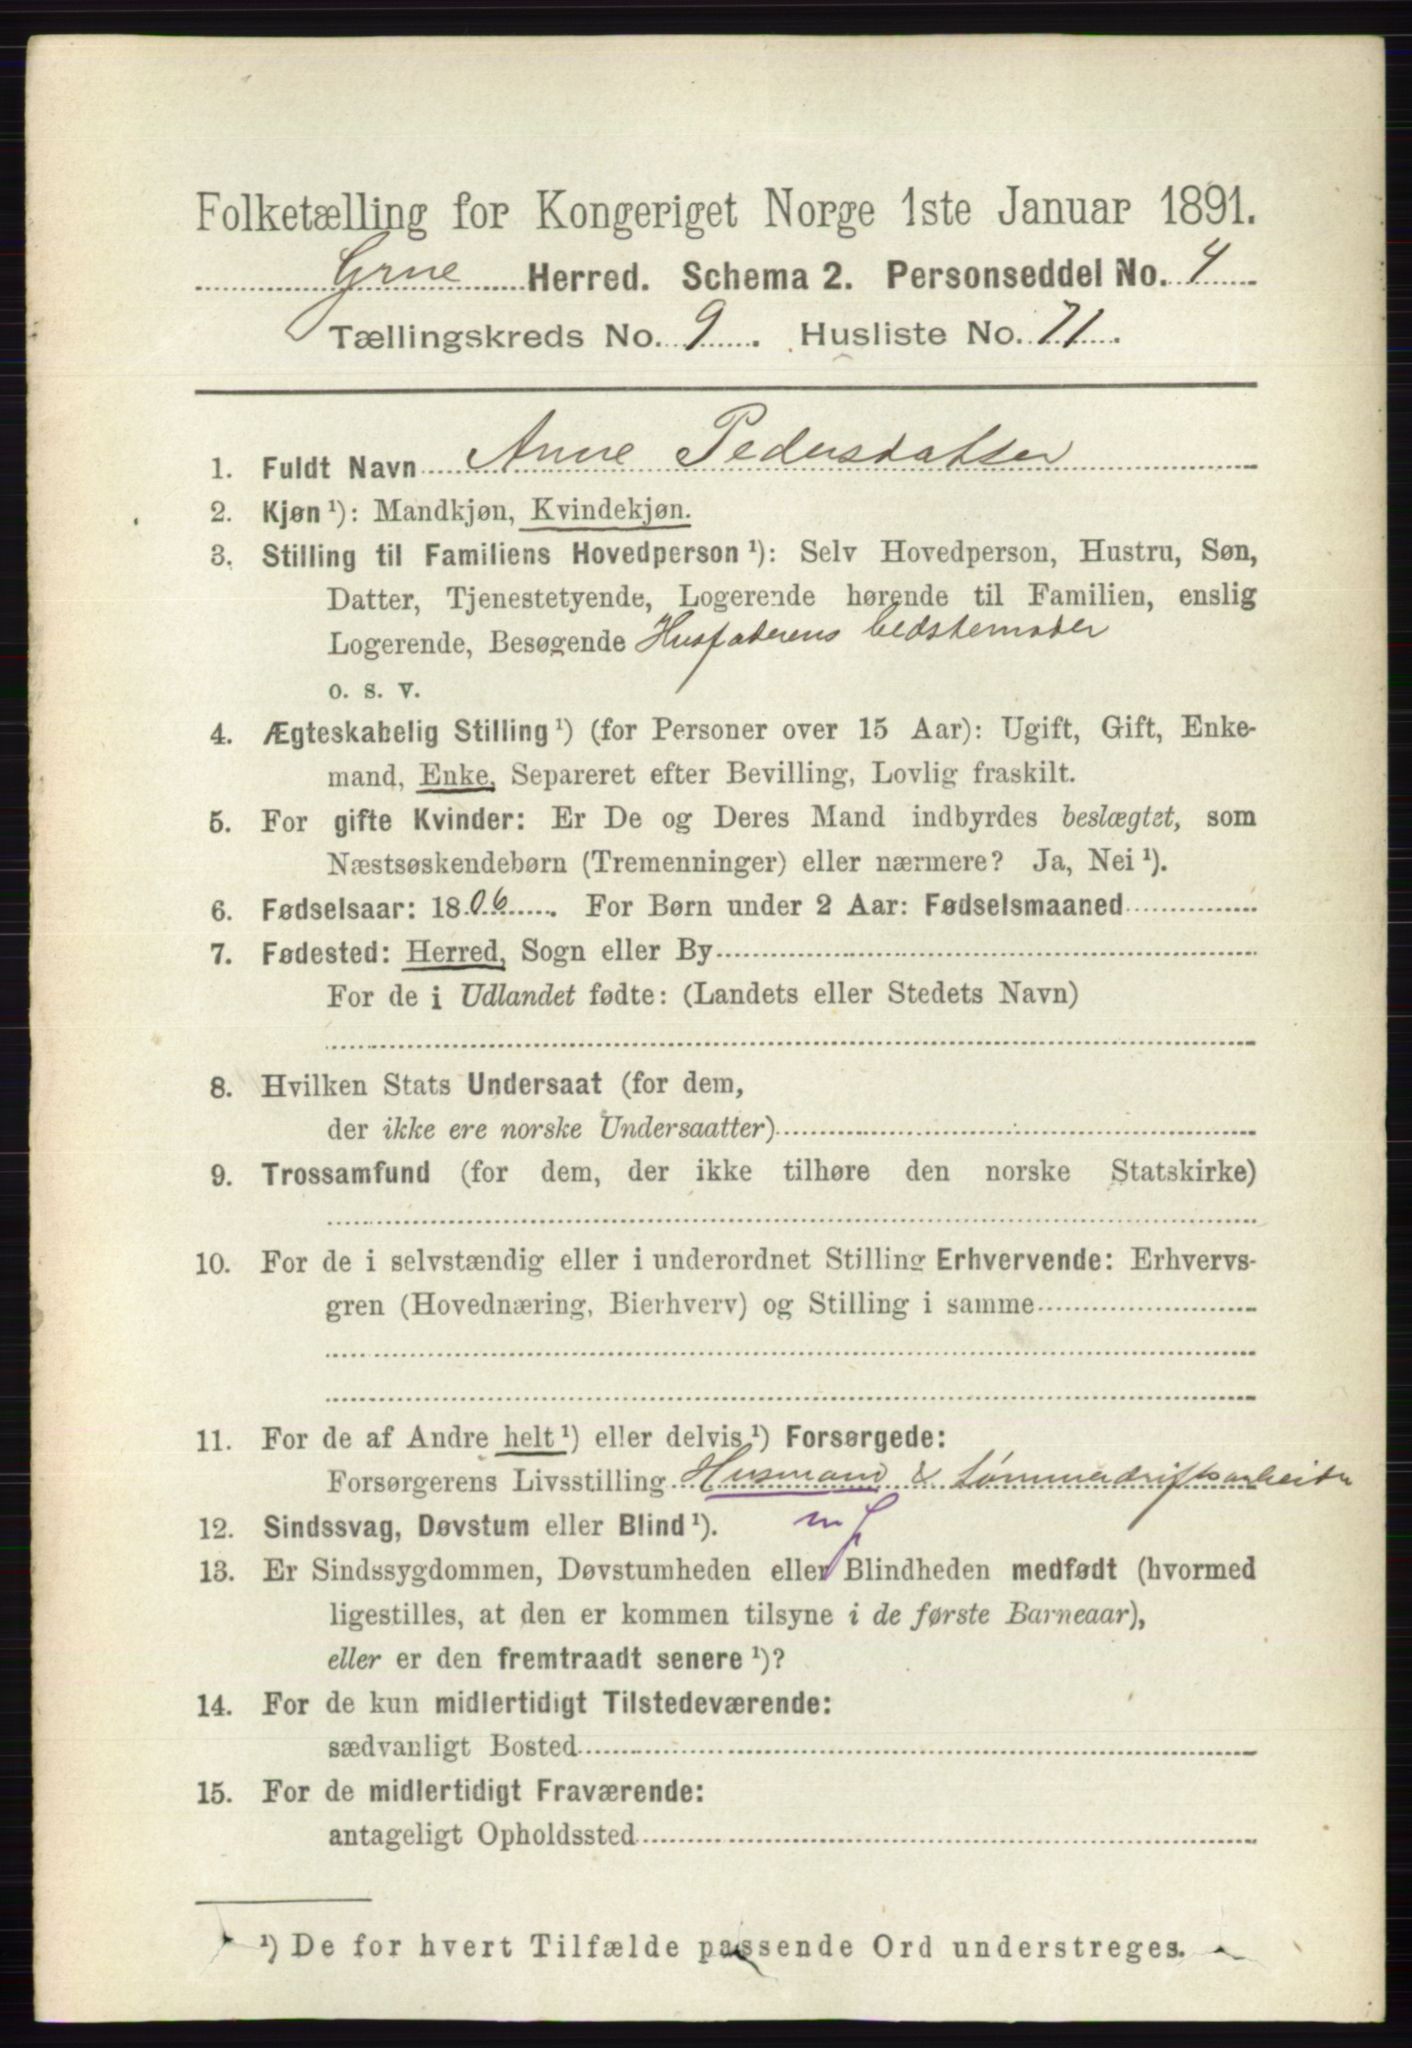 Folketælling for Kongeriget Norge 1ste Januar 1891.
Grue Herred. Schema 2. Personseddel No. 4
Tællingskreds No. 9. Husliste No. 71.
1. Fuldt Navn Anne Pedersdatter
2. Kjøn ¹): Mandkjøn, Kvindekjøn.
3. Stilling til Familiens Hovedperson ¹): Selv Hovedperson, Hustru, Søn,
Datter, Tjenestetyende, Logerende hørende til Familien, enslig
Logerende, Besøgende Husfaderens bedstemoder
o. s. v.
4. Ægteskabelig Stilling ¹) (for Personer over 15 Aar): Ugift, Gift, Enke-
mand, Enke, Separeret efter Bevilling, Lovlig fraskilt.
5. For gifte Kvinder: Er De og Deres Mand indbyrdes beslægtet, som
Næstsøskendebørn (Tremenninger) eller nærmere? Ja, Nei ¹).
6. Fødselsaar: 1806. For Børn under 2 Aar: Fødselsmaaned
7. Fødested: Herred, Sogn eller By
For de i Udlandet fødte: (Landets eller Stedets Navn)
8. Hvilken Stats Undersaat (for dem,
der ikke ere norske Undersaatter)
9. Trossamfund (for dem, der ikke tilhøre den norske Statskirke)
10. For de i selvstændig eller i underordnet Stilling Erhvervende: Erhvervs-
gren (Hovednæring, Bierhverv) og Stilling i samme
11. For de af Andre helt ¹) eller delvis ¹) Forsørgede:
Forsørgerens Livsstilling Husmand & Tømmerdriftsarbeider
12. Sindssvag, Døvstum eller Blind ¹). m J
13. Er Sindssygdommen, Døvstumheden eller Blindheden medfødt (hvormed
ligestilles, at den er kommen tilsyne i de første Barneaar),
eller er den fremtraadt senere ¹)?
14. For de kun midlertidigt Tilstedeværende:
sædvanligt Bosted
15. For de midlertidigt Fraværende:
antageligt Opholdssted
¹) De for hvert Tilfælde passende Ord understreges.